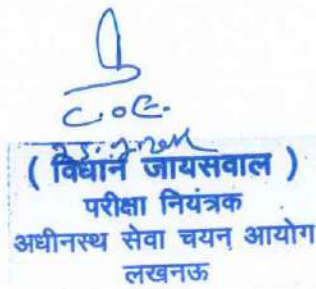 C.O.E.
( विधान जायसवाल )
परीक्षा नियंत्रक
अधीनस्थ सेवा चयन आयोग
लखनऊ